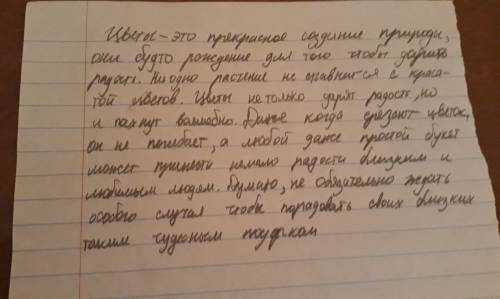 Цветы - это прекрасное создание природы,
они будто рождение для того чтобы дарить
радость. Ни одно растение не сравнится с краса-
той цветов. Цветы не только дарят радость, но
и пахнут волшебно. Даже когда срезают цветок,
он не погибает, а любой даже простой букет
может принести немало радости близким и
любимым людям. Думаю, не обязательно ждать
особого случая чтобы порадовать своих близких
таким чудесным подарком